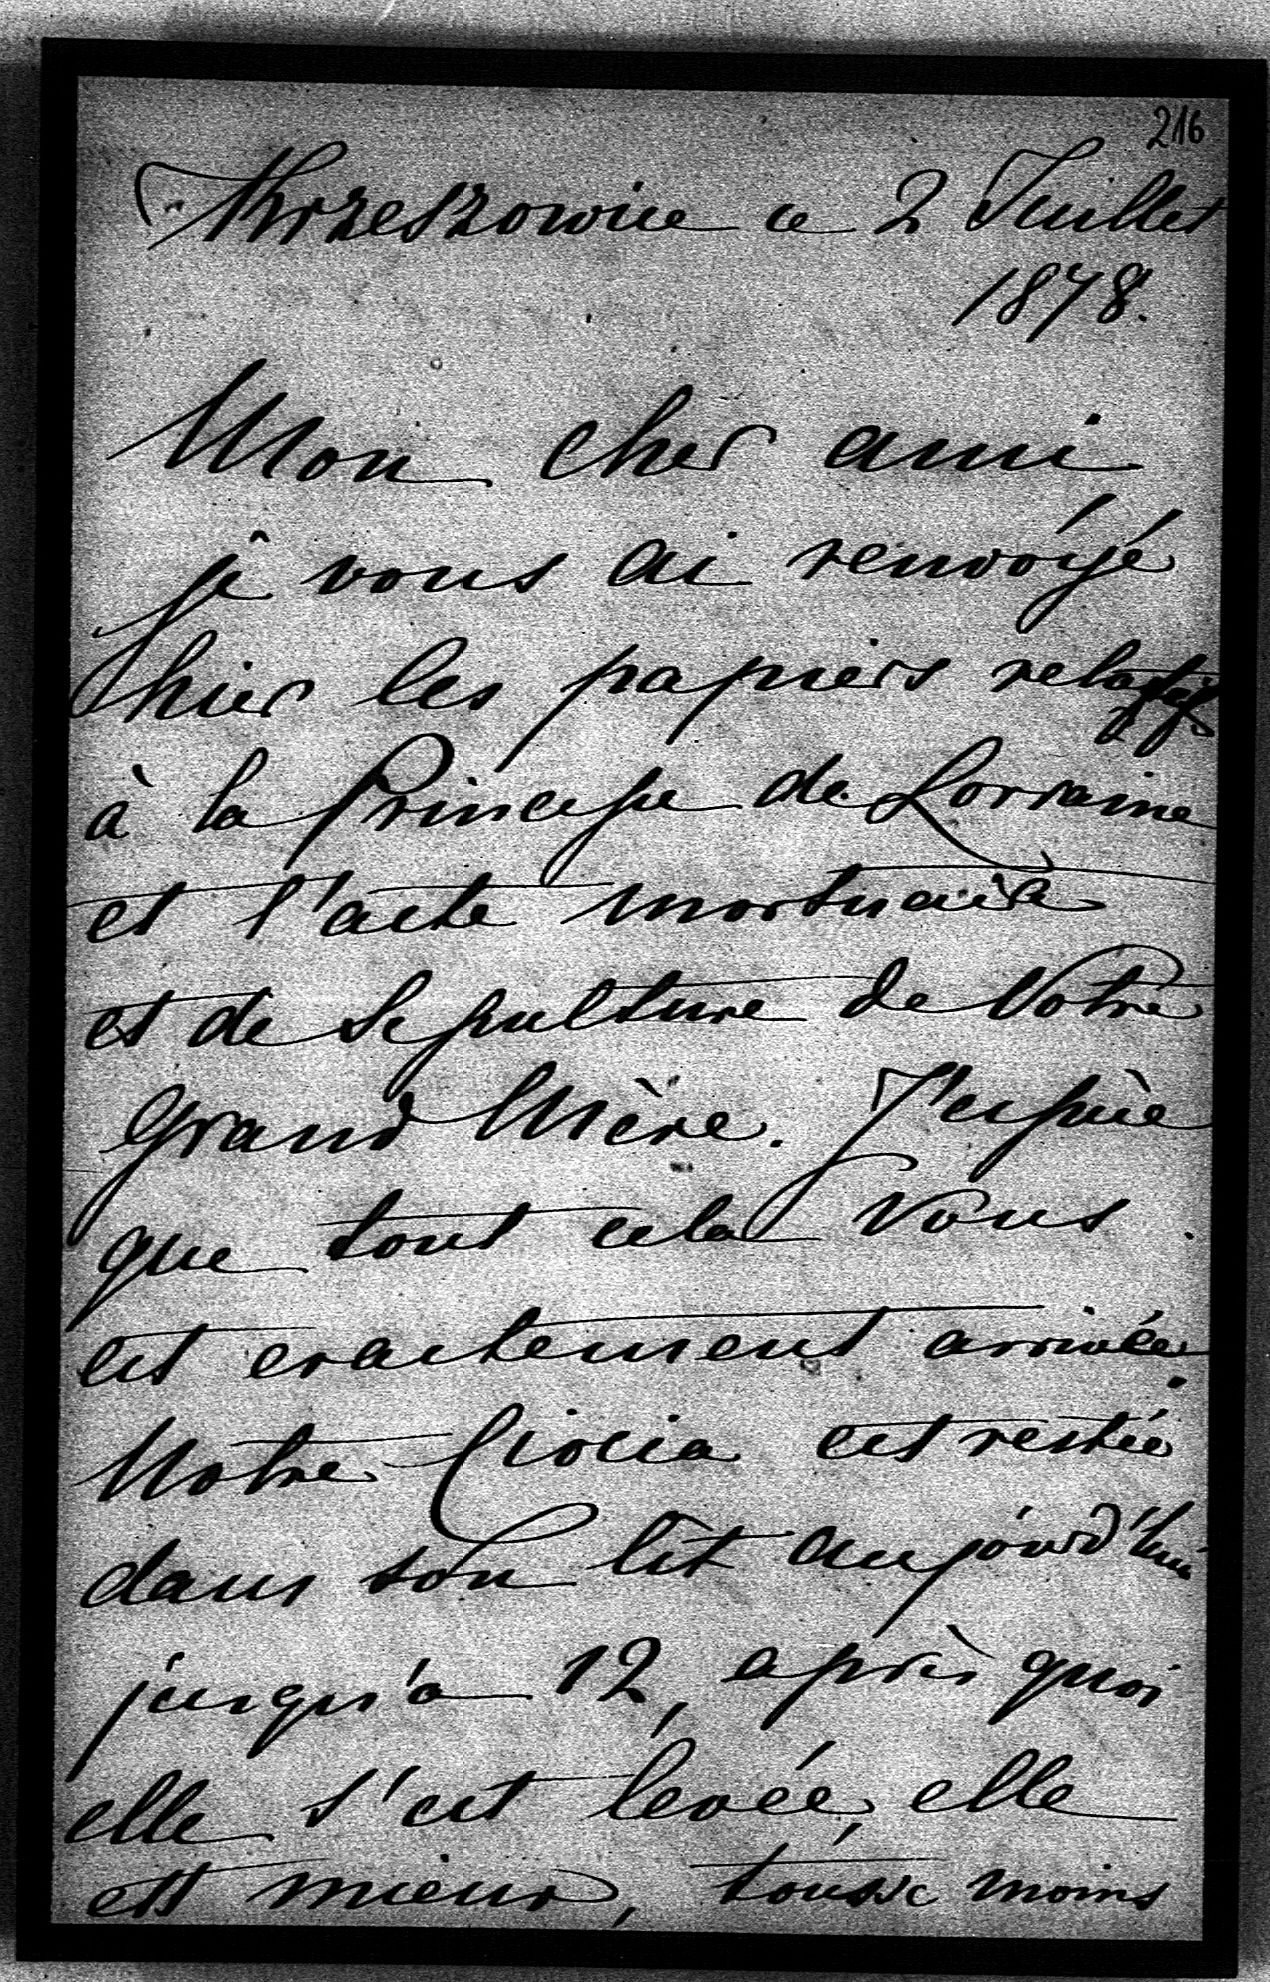 216
Krzeszowice ce 2 Juillet
1878.
Mon cher ami
je vous ai renvoyé
hier les papiers relatifs
à la Princesse de Lorraine
et l'acte mortuaire
et de Sepulture de Votre
Grand Mère. J'espère
que tout cela Vous
est exactement arrivée.
Notre Ciocia est restée
dans son lit aujourd'hui
jusqu'a 12, après quoi
elle s'est levée, elle
est mieux, tousse moins